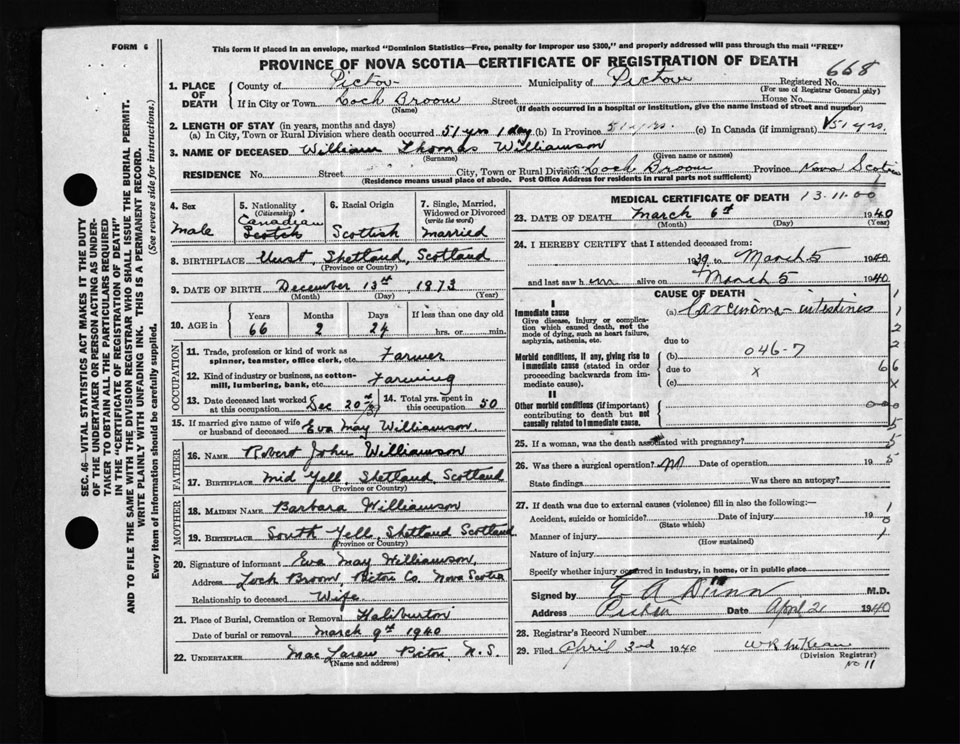 FORM 6
This form if placed in an envelope, marked "Dominion Statistics—Free, penalty for improper use $300," and properly addressed will pass through the mail "FREE"
PROVINCE OF NOVA SCOTIA—CERTIFICATE OF REGISTRATION OF DEATH
668
1. PLACE OF DEATH
County of Pictou Municipality of Pictou Registered No.
(For use of Registrar General only)
If in City or Town Loch Broom Street House No.
(Name) (If death occurred in a hospital or institution, give the name instead of street and number)
2. LENGTH OF STAY (in years, months and days)
(a) In City, Town or Rural Division where death occurred 51 yrs 1 day (b) In Province 51 yrs. (c) In Canada (if immigrant) 51 yrs.
3. NAME OF DECEASED William Thomas Williamson
(Surname) (Given name or names)
RESIDENCE No. Street City, Town or Rural Division Loch Broom Province Nova Scotia
(Residence means usual place of abode. Post Office Address for residents in rural parts not sufficient)
4. Sex
male
5. Nationality
(Citizenship)
Canadian
Scotch
6. Racial Origin
Scottish
7. Single, Married, Widowed or Divorced
(write the word)
married
8. BIRTHPLACE Unst, Shetland, Scotland
(Province or Country)
9. DATE OF BIRTH December 13th 1873
(Month) (Day) (Year)
10. AGE in
Years Months Days If less than one day old
66 2 24 hrs. or min.
OCCUPATION
11. Trade, profession or kind of work as spinner, teamster, office clerk, etc. Farmer
12. Kind of industry or business, as cotton-mill, lumbering, bank, etc. Farming
13. Date deceased last worked at this occupation Dec 20th
14. Total yrs. spent in this occupation 50
15. If married give name of wife or husband of deceased Eva May Williamson.
FATHER
16. Name Robert John Williamson
17. Birthplace Mid Yell, Shetland Scotland
(Province or Country)
MOTHER
18. Maiden Name Barbara Williamson
19. Birthplace South Yell, Shetland Scotland
(Province or Country)
20. Signature of informant Eva May Williamson,
Address Loch Broom, Pictou Co. Nova Scotia
Relationship to deceased Wife.
21. Place of Burial, Cremation or Removal Haliburton
Date of burial or removal March 9th 1940
22. UNDERTAKER MacLaren Pictou, N.S.
(Name and address)
MEDICAL CERTIFICATE OF DEATH 13-11-00
23. DATE OF DEATH March 6th 1940
(Month) (Day) (Year)
24. I HEREBY CERTIFY that I attended deceased from:
1939 to March 5 1940
and last saw him alive on March 5 1940
CAUSE OF DEATH
I
Immediate cause
Give disease, injury or complication which caused death, not the mode of dying, such as heart failure, asphyxia, asthenia, etc.
(a) Carcinoma - intestines
due to
Morbid conditions, if any, giving rise to immediate cause (stated in order proceeding backwards from immediate cause).
(b) 046-7
due to x
(c)
II
Other morbid conditions (if important) contributing to death but not causally related to immediate cause.
25. If a woman, was the death associated with pregnancy?
26. Was there a surgical operation? no Date of operation 19
State findings Was there an autopsy?
27. If death was due to external causes (violence) fill in also the following:—
Accident, suicide or homicide? Date of injury 19
(State which)
Manner of injury
(How sustained)
Nature of injury
Specify whether injury occurred in industry, in home, or in public place
Signed by E A Dunn M.D.
Address Pictou Date April 2 1940
28. Registrar's Record Number
29. Filed April 3rd 1940 WR McKean
(Division Registrar)
No 11
SEC. 46—VITAL STATISTICS ACT MAKES IT THE DUTY
OF THE UNDERTAKER OR PERSON ACTING AS UNDER-
TAKER TO OBTAIN ALL THE PARTICULARS REQUIRED
IN THE "CERTIFICATE OF REGISTRATION OF DEATH"
AND TO FILE THE SAME WITH THE DIVISION REGISTRAR WHO SHALL ISSUE THE BURIAL PERMIT.
WRITE PLAINLY WITH UNFADING INK. THIS IS A PERMANENT RECORD.
Every item of information should be carefully supplied. (See reverse side for instructions.)